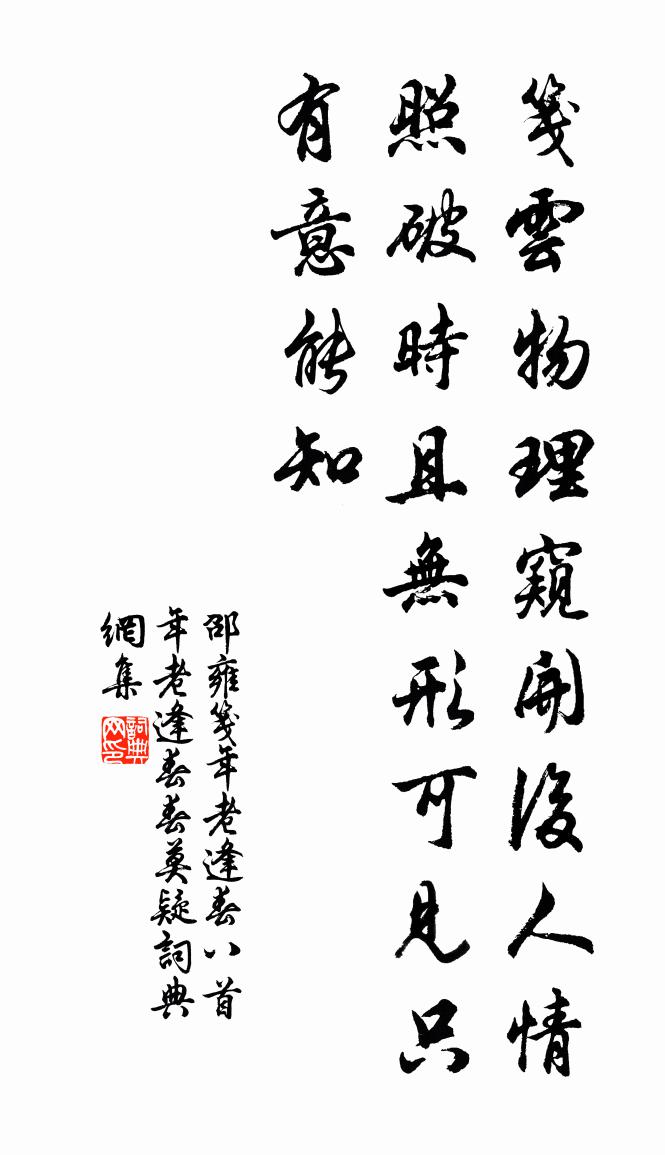 箋雲物理窺開後人情
照破時且無形可見只
有意能知
邵雍箋年老逢春八首
年老逢春春莫疑詞典
網集
詞典
网印